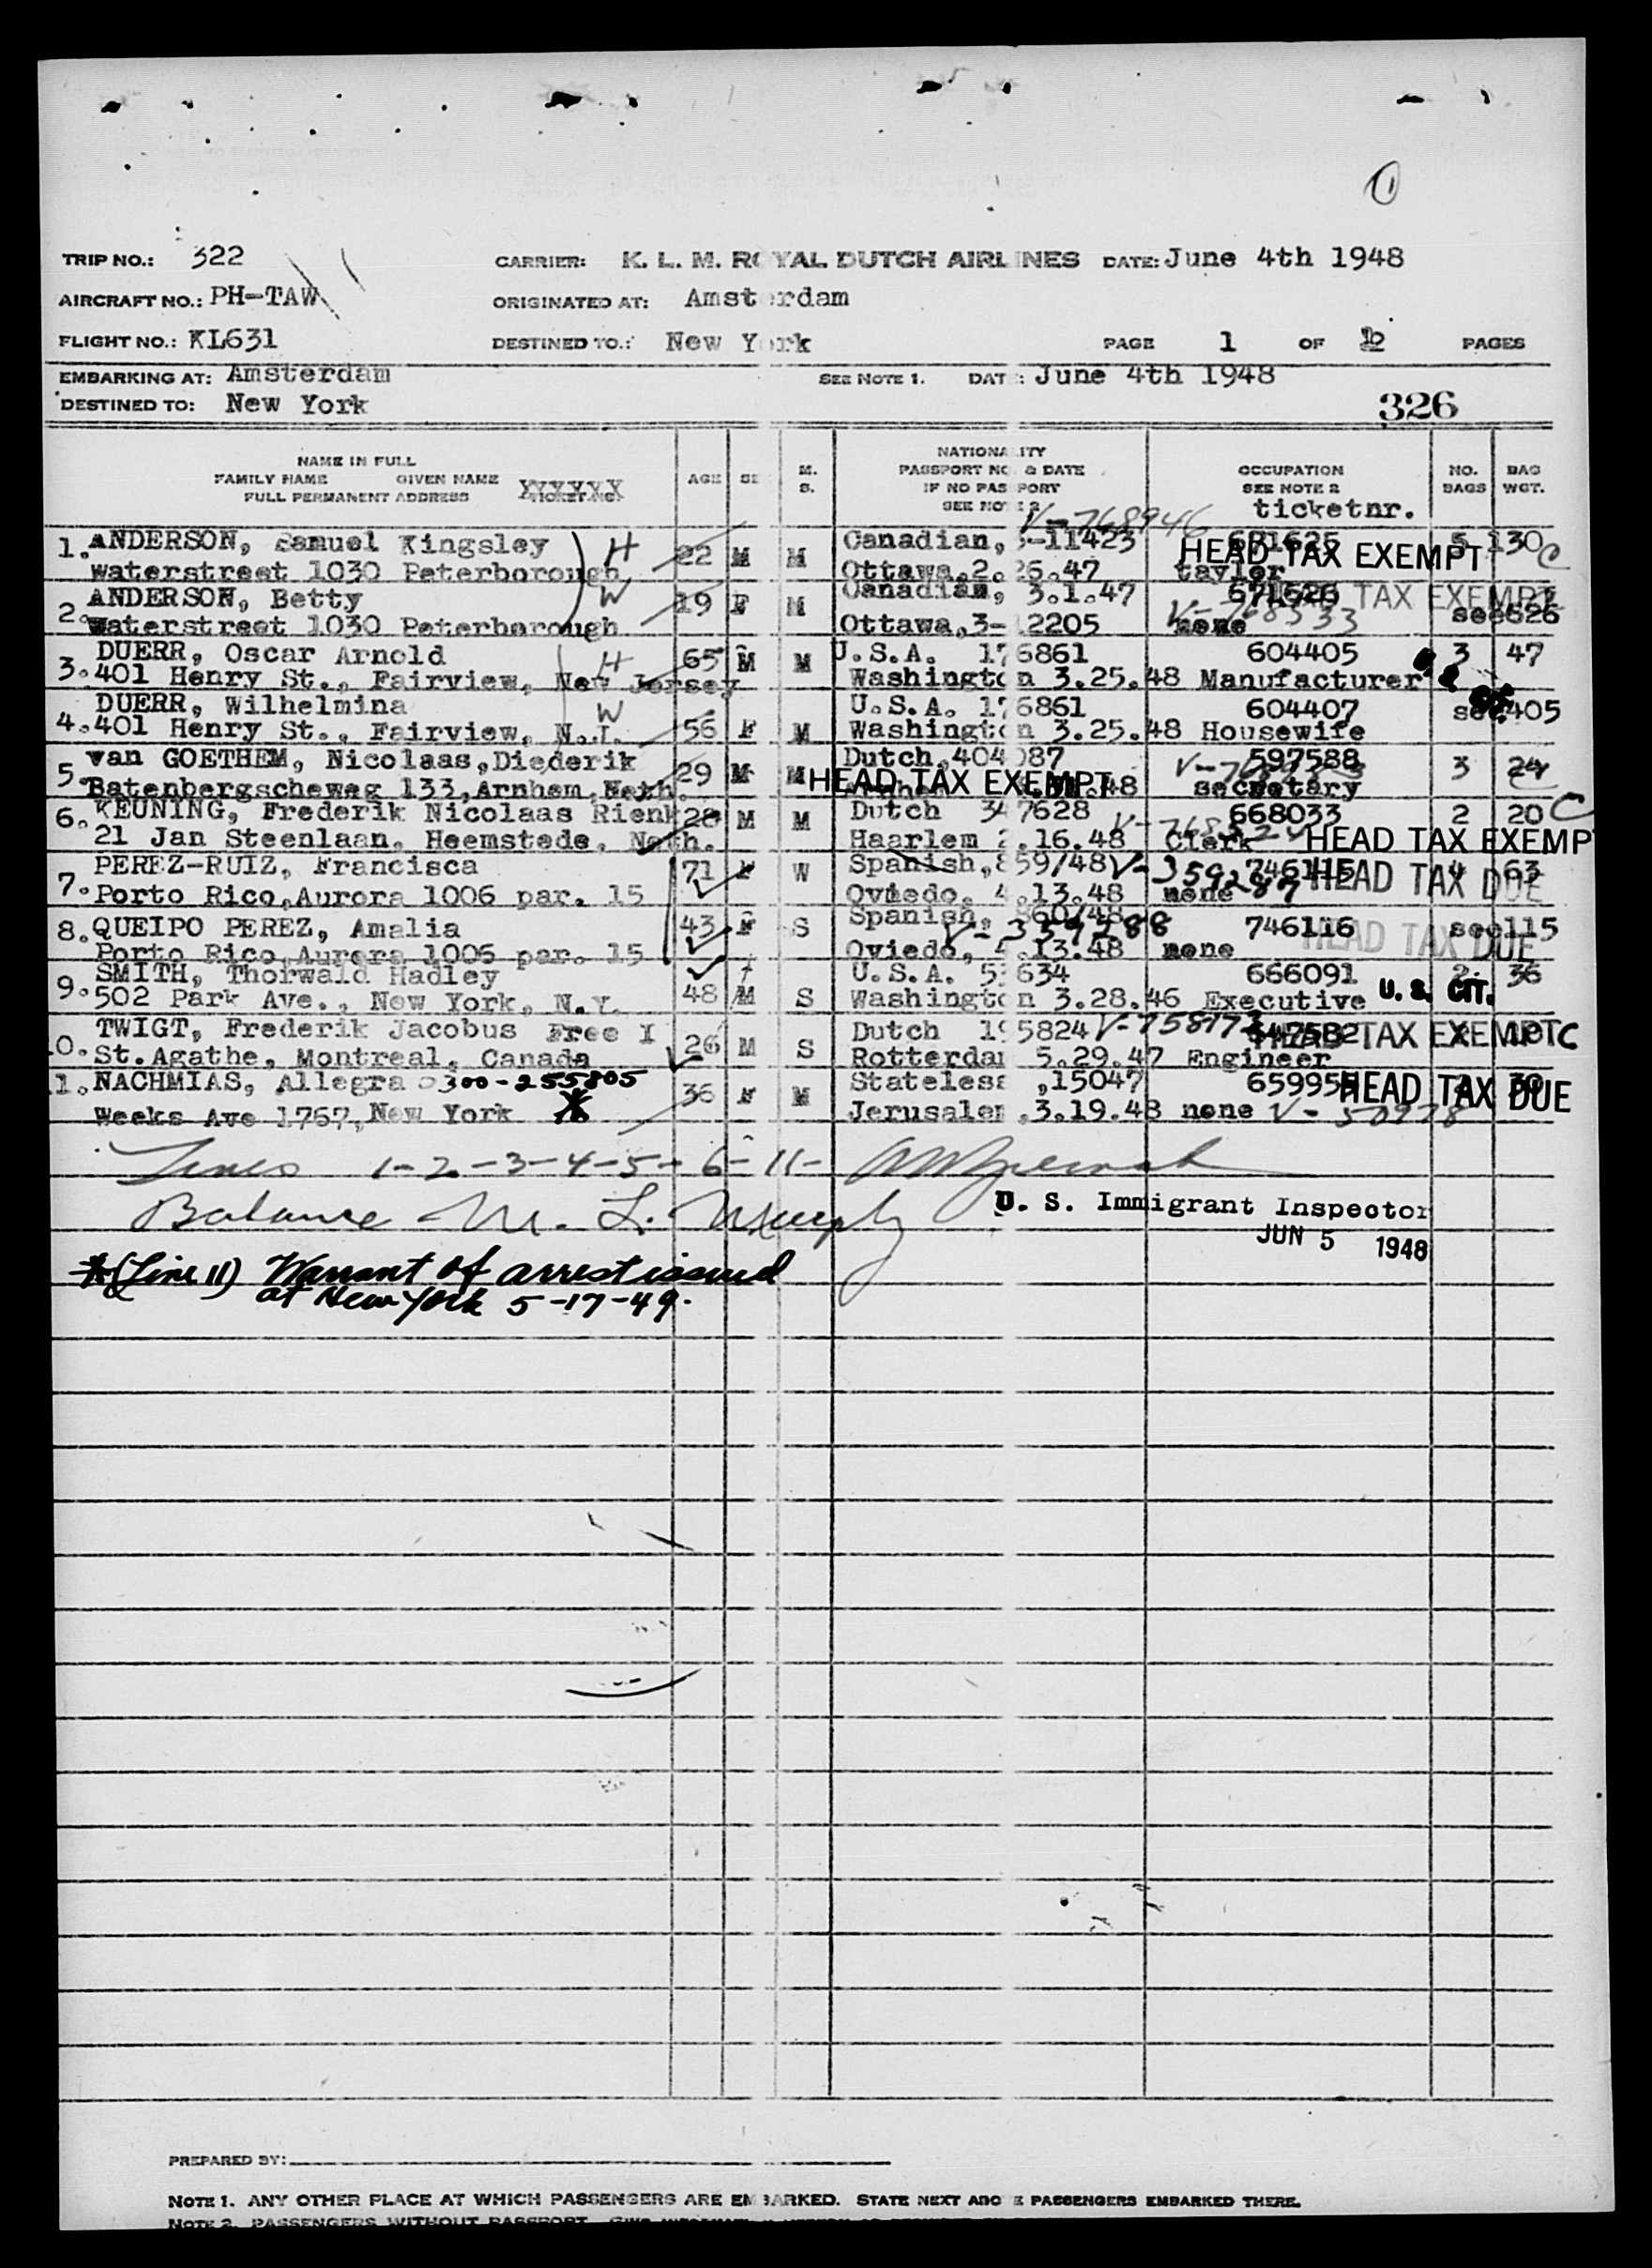 1
TRIP NO.: 322 CARRIER: K. L. M. ROYAL DUTCH AIRLINES DATE: June 4th 1948
AIRCRAFT NO.: PH-TAW ORIGINATED AT: Amsterdam
FLIGHT NO.: KL631 DESTINED TO.: New York PAGE 1 OF PAGES
EMBARKING AT: Amsterdam SEE NOTE 1. DATE: June 4th 1948
DESTINED TO: New York 326
NAME IN FULL
FAMILY NAME GIVEN NAME XXXXXX
FULL PERMANENT ADDRESS TICKET NO.
AGE SE M. S.
NATIONALITY
PASSPORT NO. & DATE
IF NO PASSPORT
SEE NOTE 2
OCCUPATION
SEE NOTE 2
ticketnr.
NO. BAGS
BAG WGT.
V-768946
1. ANDERSON, Samuel Kingsley H 22 M M Canadian, 3-11423 5 130 C
HEAD TAX EXEMPT
Waterstreet 1030 Peterborough Ottawa, 2.26.47 taylor
2. ANDERSON, Betty W 19 F M Canadian, 3.1.47 671626 HEAD TAX EXEMPT
Waterstreet 1030 Peterborough Ottawa, 3-12205 none V-768333 see626
3. DUERR, Oscar Arnold H 65 M M U.S.A. 176861 604405 3 47
401 Henry St., Fairview, New Jersey Washington 3.25.48 Manufacturer
4. DUERR, Wilhelmina W 56 F M U.S.A. 176861 604407 see405
401 Henry St., Fairview, N.J. Washington 3.25.48 Housewife
5. van GOETHEM, Nicolaas, Diederik 29 M M Dutch, 404087 597588 3 24
Batenbergscheweg 133, Arnhem, Neth. HEAD TAX EXEMPT .48 secretary
6. KEUNING, Frederik Nicolaas Rienk 28 M M Dutch 347628 668033 2 20 C
21 Jan Steenlaan, Heemstede, Neth. Haarlem 2.16.48 Clerk HEAD TAX EXEMP
7. PEREZ-RUIZ, Francisca 71 F W Spanish, 859/48 V-359287 746115 4 63
Porto Rico, Aurora 1006 par. 15 Oviedo, 4.13.48 none HEAD TAX DUE
8. QUEIPO PEREZ, Amalia 43 F S Spanish, 860/48 V-359288 746116 see115
Porto Rico, Aurora 1006 par. 15 Oviedo, 4.13.48 none HEAD TAX DUE
9. SMITH, Thorwald Hadley 48 M S U.S.A. 666091 2 36
502 Park Ave., New York, N.Y. Washington 3.28.46 Executive U. S. CIT.
0. TWIGT, Frederik Jacobus Free I 26 M S Dutch 195824 HEAD TAX EXEMPT C
St. Agathe, Montreal, Canada Rotterdam 5.29.47 Engineer
1. NACHMIAS, Allegra 0300-255805 36 F M Stateless, 15047 HEAD TAX DUE
Weeks Ave 1767, New York Jerusalem .3.19.48 none V-50978
Lines 1-2-3-4-5-6-11-
Balance M. L. Murphy
U. S. Immigrant Inspector
JUN 5 1948
*(Line 11) Warrant of arrest issued
at New York 5-17-49.
PREPARED BY:
NOTE 1. ANY OTHER PLACE AT WHICH PASSENGERS ARE EMBARKED. STATE NEXT ABOVE PASSENGERS EMBARKED THERE.
NOTE 2. PASSENGERS WITHOUT PASSPORT.